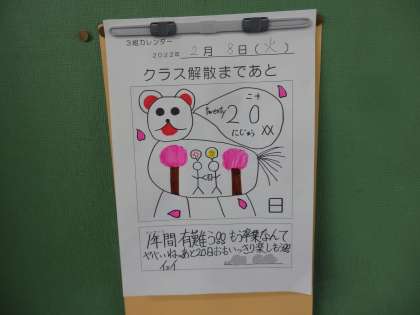 3組カレンダー
2022年 2月 8日(火)
クラス解散まであと
ニ十
Twenty 20
にじゅう XX
日
1年間有難う もう卒業なんて
ヤバいねあと20日おもいっきり楽しもう
イェイ